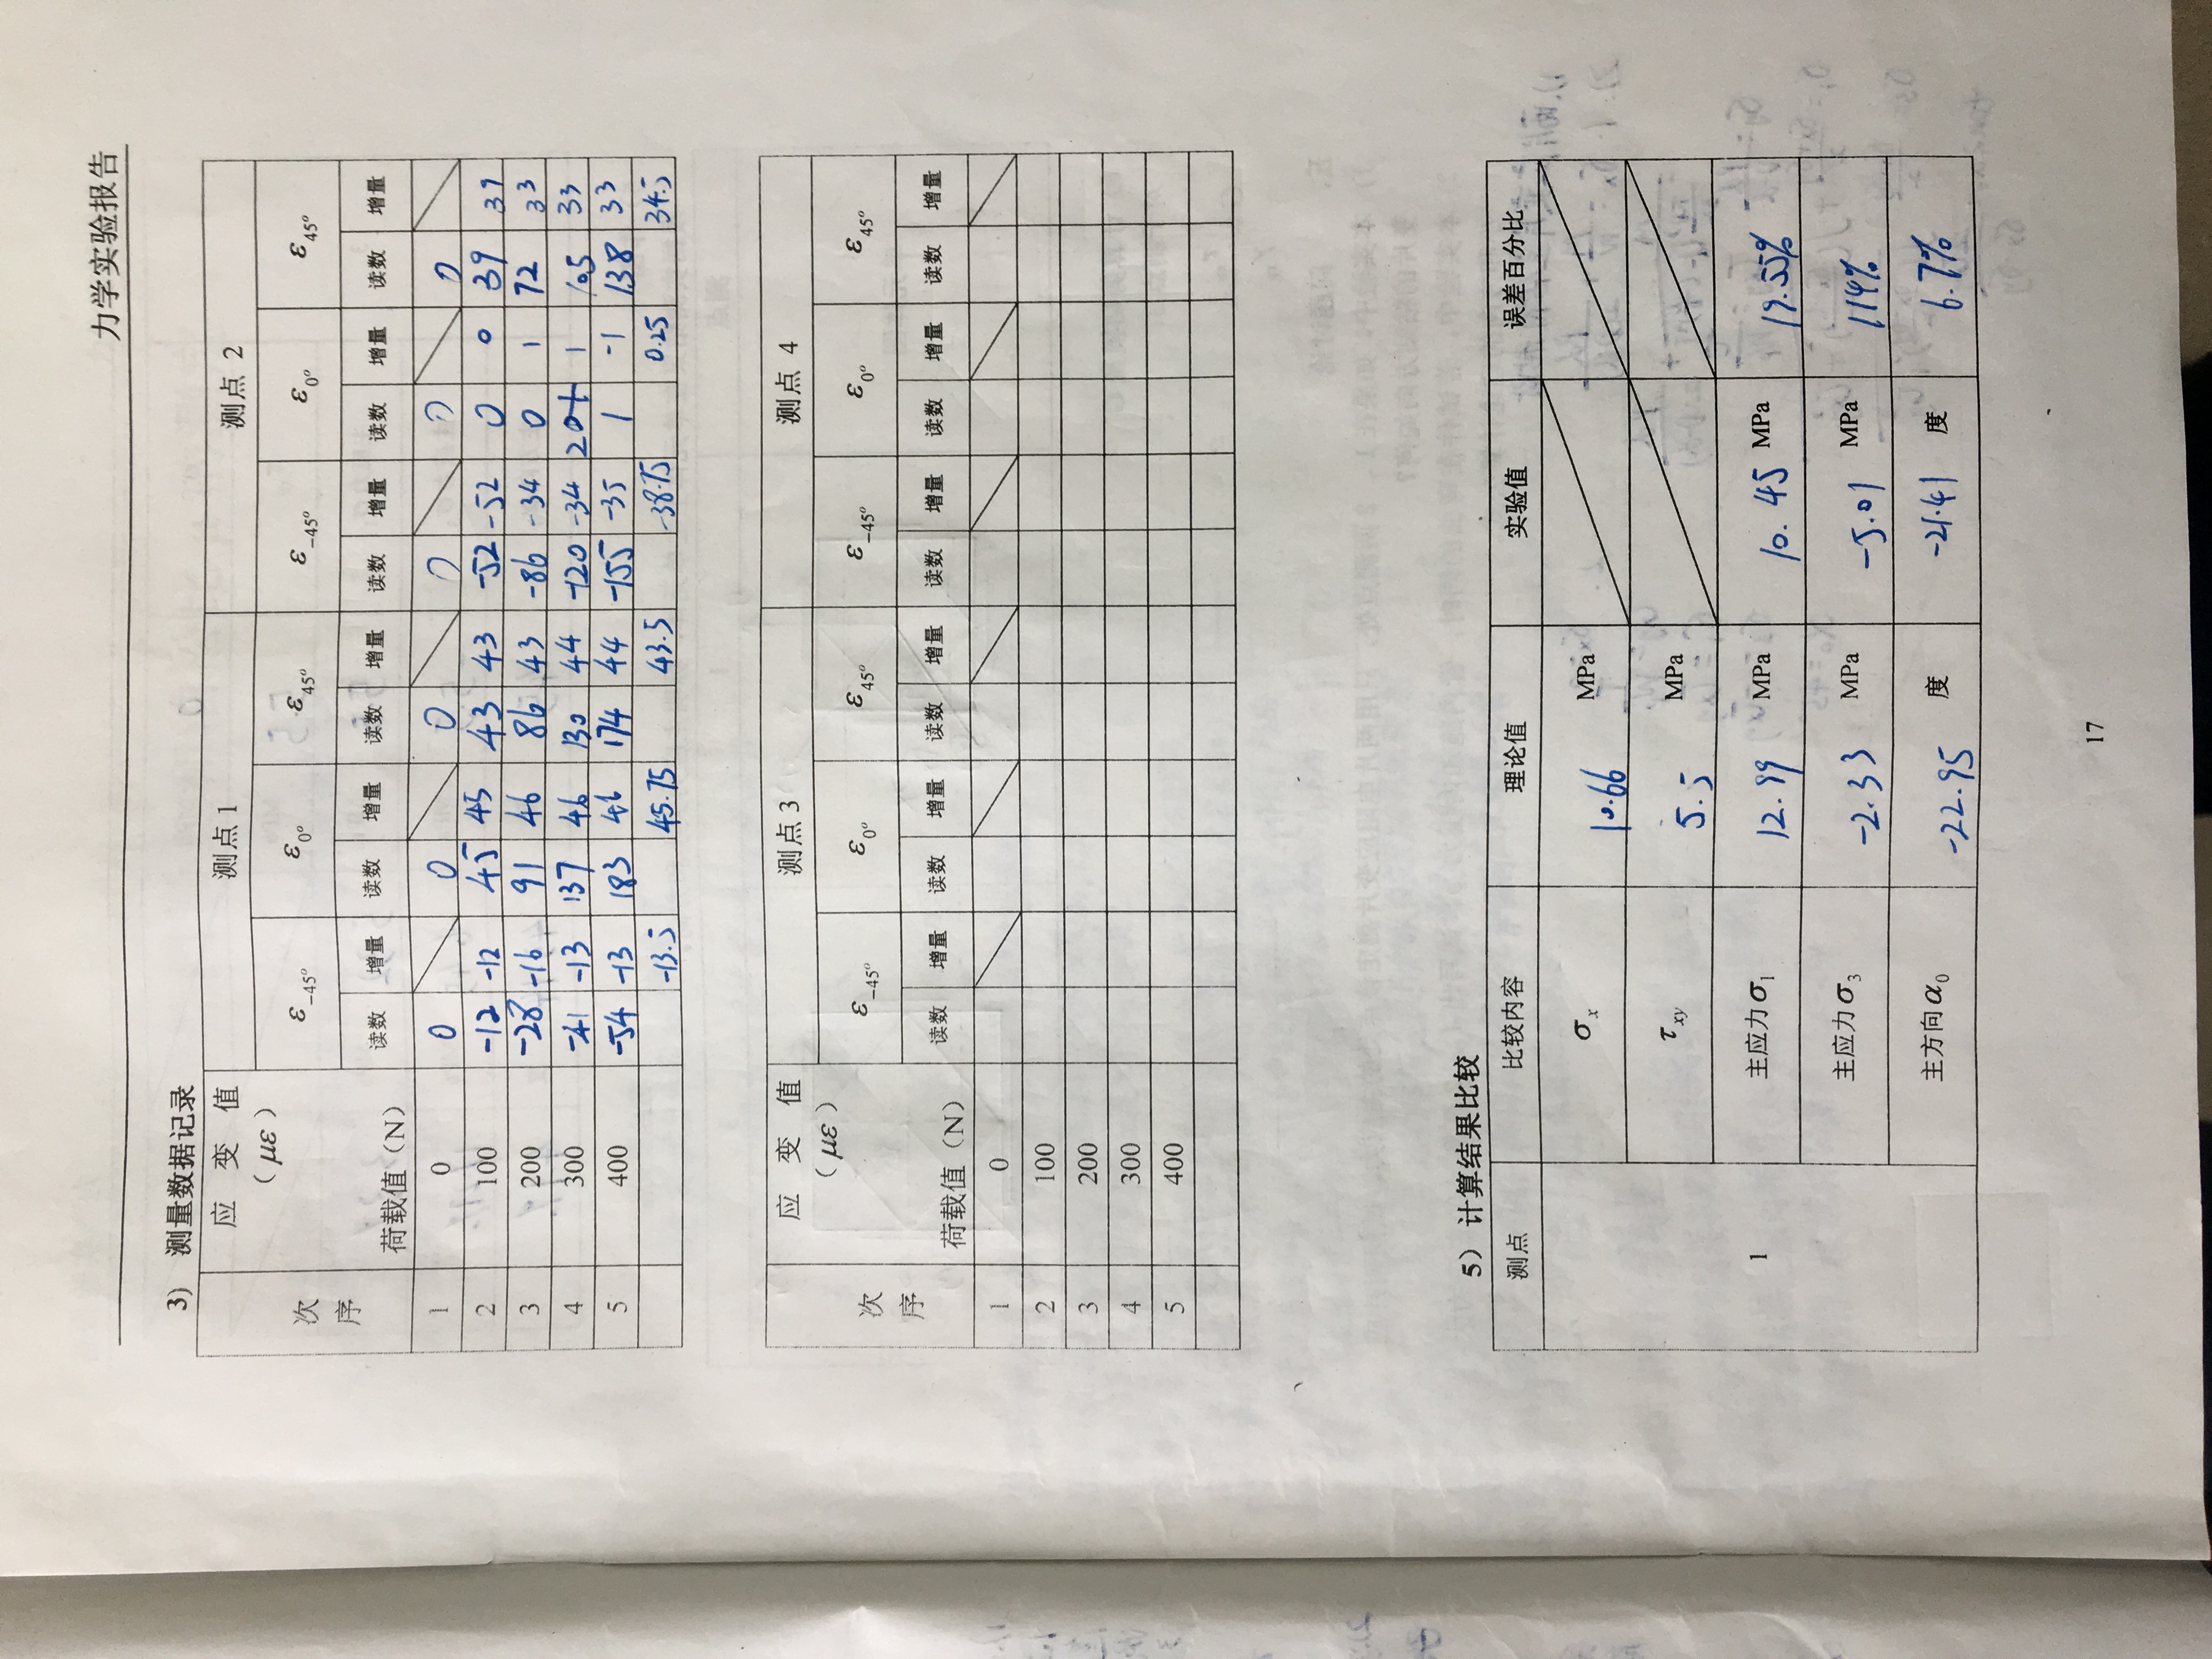 力学实验报告
3) 测量数据记录
次序 应变值（με） 荷载值（N） 测点1 测点 2
ε-45° ε0° ε45° ε-45° ε0° ε45°
读数 增量 读数 增量 读数 增量 读数 增量 读数 增量 读数 增量
1 0 0 0 0 0 0 0
2 100 -12 -12 45 45 43 43 -52 -52 0 0 39 39
3 200 -28 -16 91 46 86 43 -86 -34 0 1 72 33
4 300 -41 -13 137 46 130 44 -120 -34 1 105 33
5 400 -54 -13 183 46 174 44 -155 -35 1 -1 138 33
-13.5 45.75 43.5 -38.75 0.25 34.5
次序 应变值（με） 荷载值（N） 测点3 测点 4
ε-45° ε0° ε45° ε-45° ε0° ε45°
读数 增量 读数 增量 读数 增量 读数 增量 读数 增量 读数 增量
1 0
2 100
3 200
4 300
5 400
5） 计算结果比较
测点 比较内容 理论值 实验值 误差百分比
σx 10.66 MPa
τxy 5.5 MPa
1 主应力σ1 12.99 MPa 10.45 MPa 19.55%
主应力σ3 -2.33 MPa -5.01 MPa 114%
主方向α0 -22.95 度 -21.41 度 6.7%
17